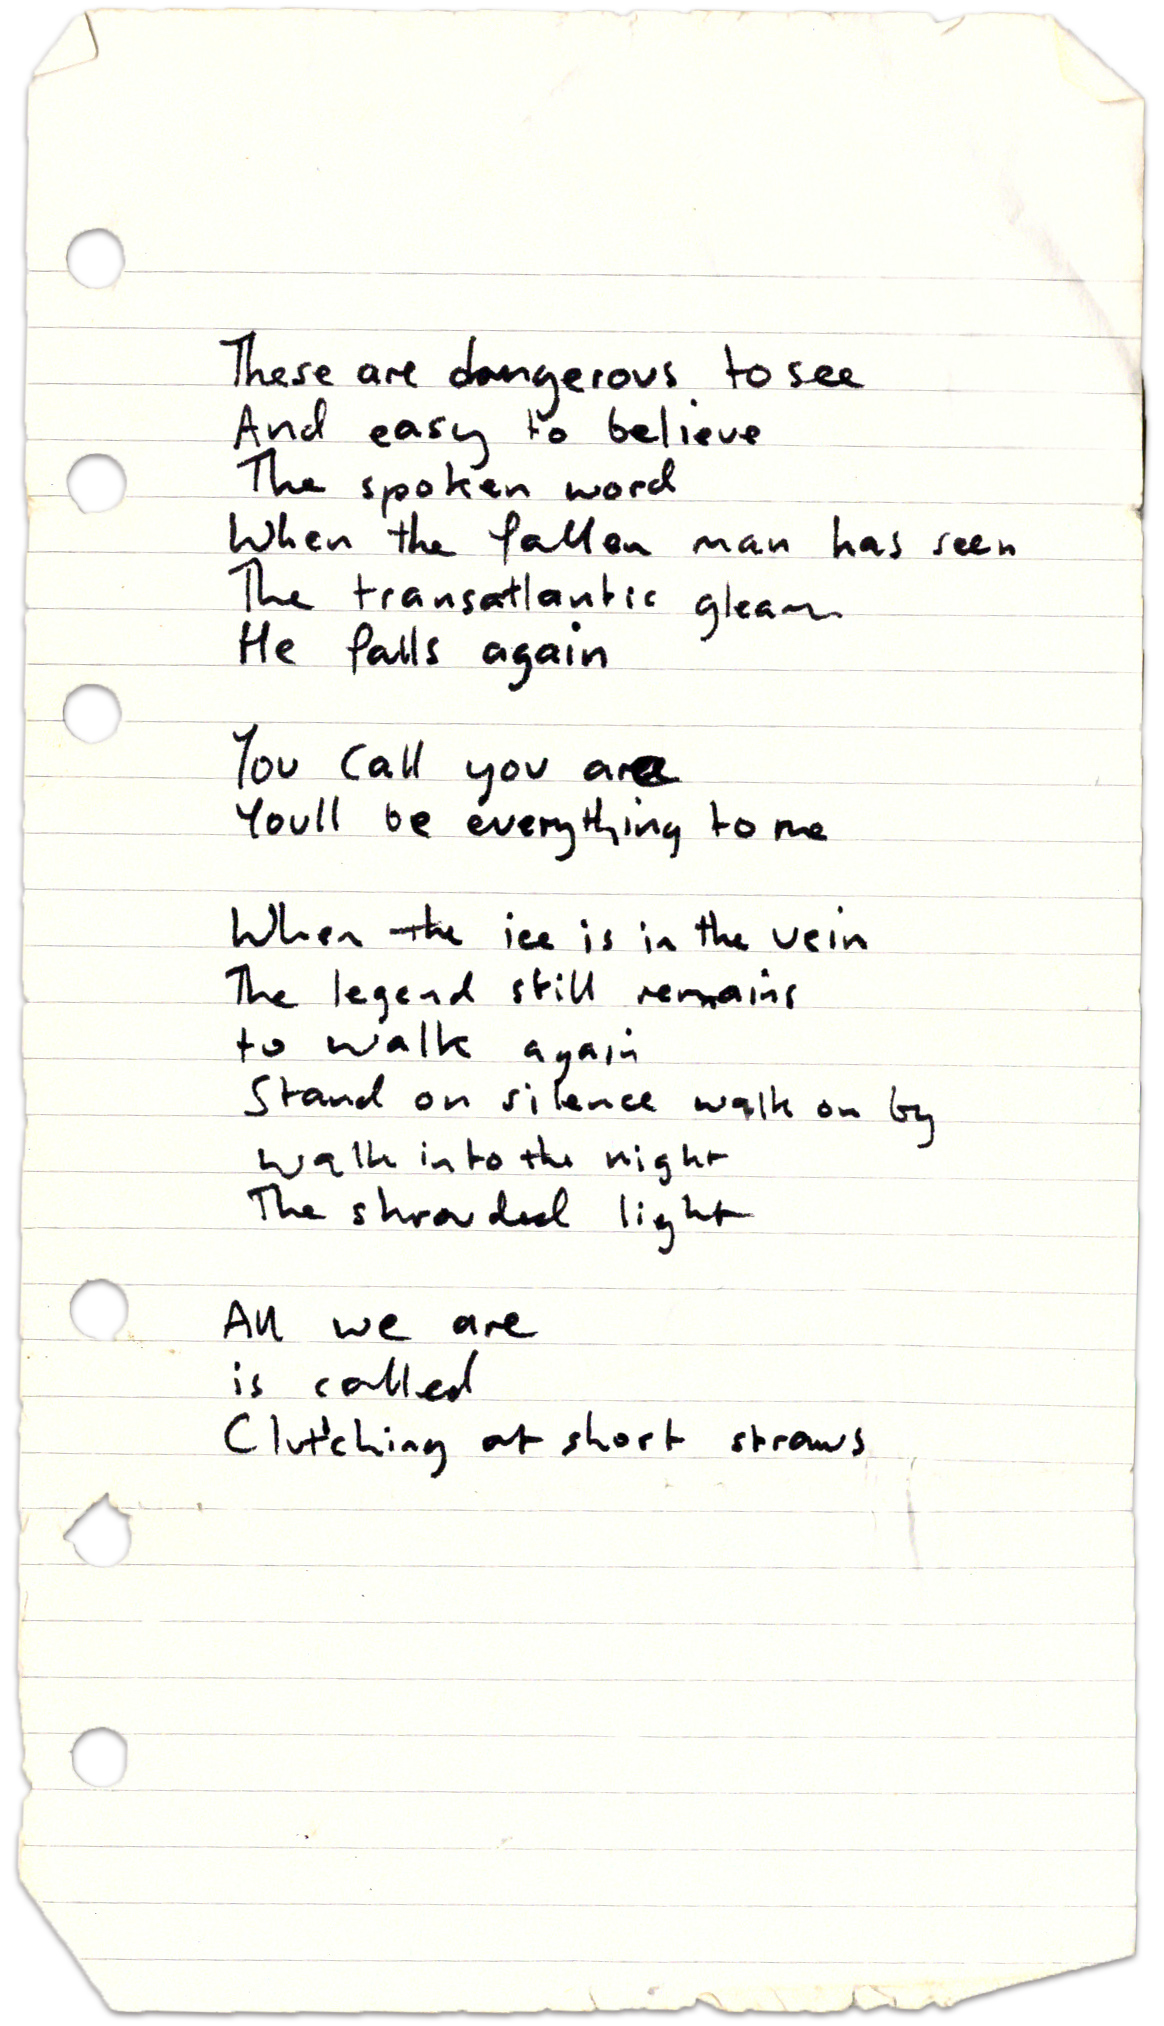 These are dangerous to see
And easy to believe
The spoken word
When the fallen man has seen
The transatlantic gleam
He falls again
You Call you are
Youll be everything to me
When the ice is in the vein
The legend still remains
to walk again
Stand on silence walk on by
walk into the night
The shrouded light
All we are
is called
Clutching at short straws